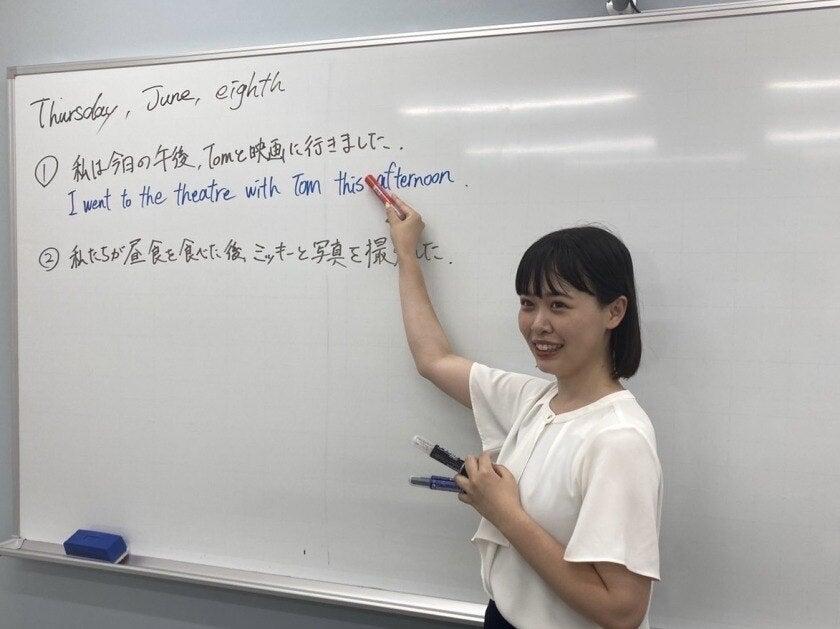 Thursday, June, eighth
① 私は今日の午後、Tomと映画に行きました.
I went to the theatre with Tom this afternoon.
② 私たちが昼食を食べた後、ミッキーと写真を撮 た.